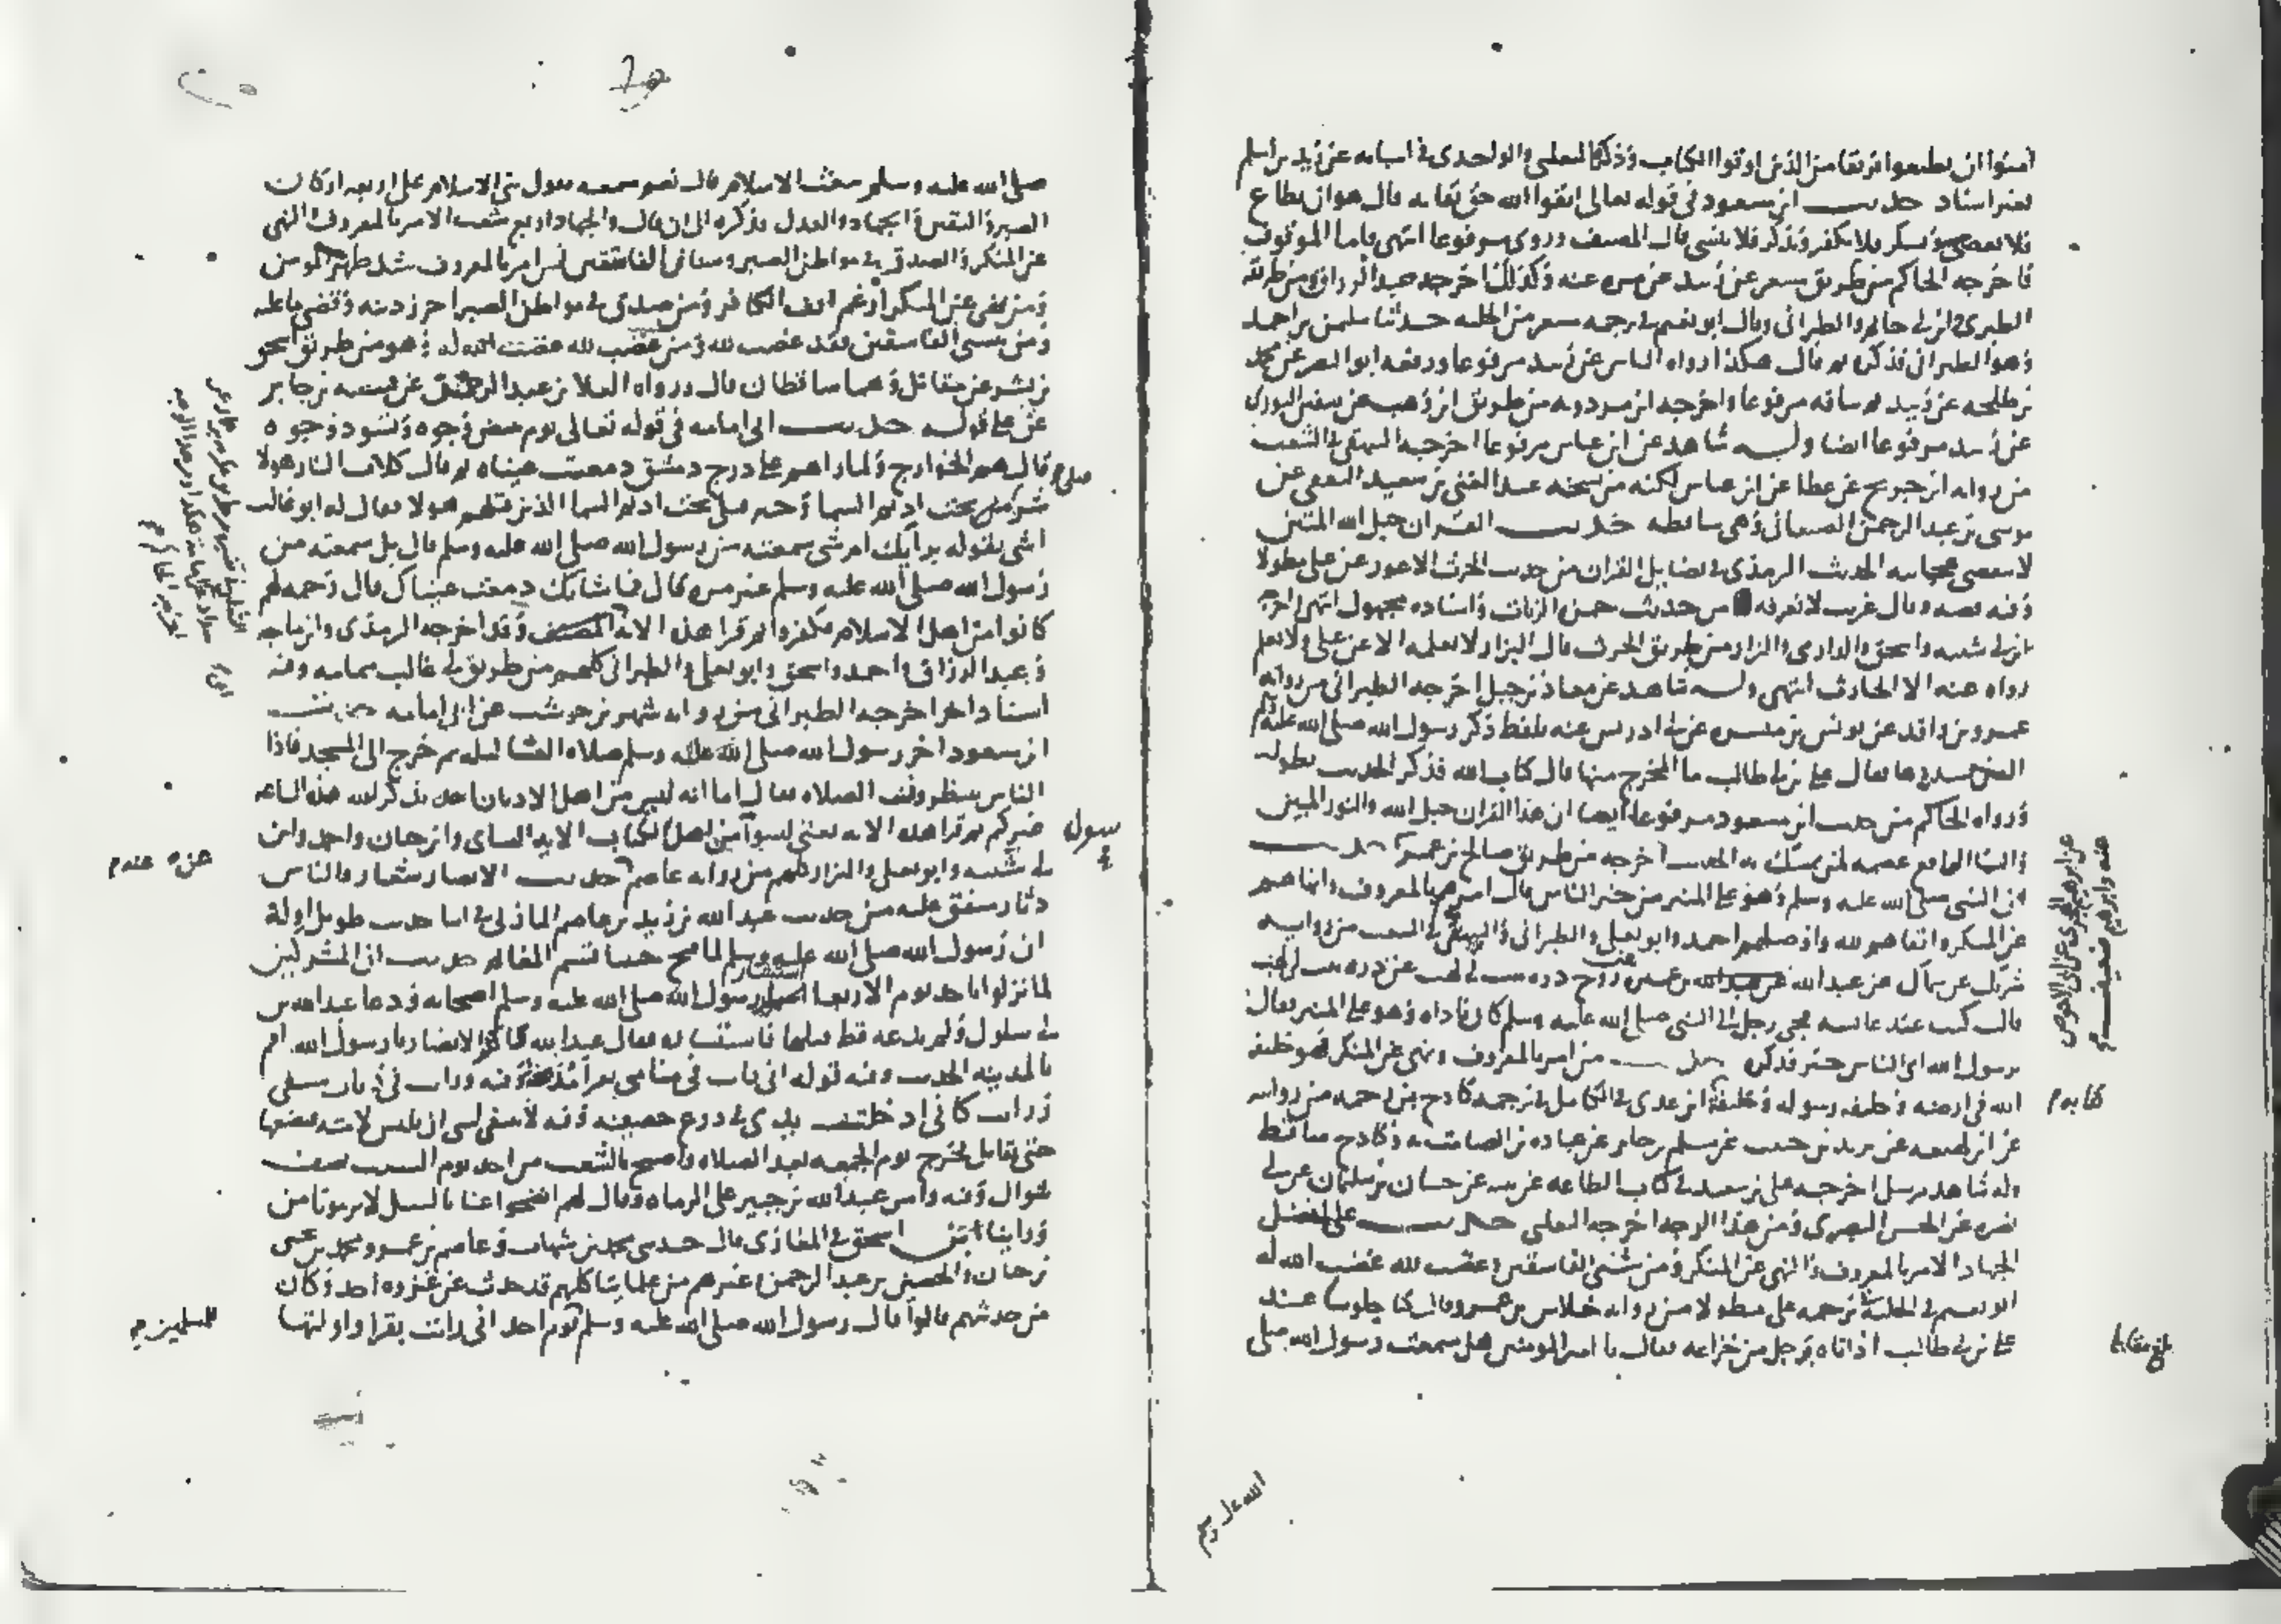 امنوا ان تطيعوا فريقا من الذين اوتوا الكتاب وذكره الثعلبي والواحدي في اسبابه عن زيد بن اسلم
بغير اسناد حديث ابن مسعود في قوله تعالى اتقوا الله حق تقاته قال هو ان يطاع
فلا يعصى ويشكر فلا يكفر ويذكر فلا ينسى قال المصنف وروي مرفوعا انتهى فاما الموقوف
فاخرجه الحاكم من طريق مسعر عن زبيد عن مره عنه وكذلك اخرجه عبد الرزاق ومن طريقه
الطبري وابن ابي حاتم والطبراني وقال ابو نعيم في ترجمه مسعر من الحليه حدثنا سليمن بن احمد
وهو الطبراني فذكره ثم قال هكذا رواه الناس عن زبيد مرفوعا ورفعه ابو النضر عن محمد
بن طلحه عن زبيد ثم ساقه مرفوعا واخرجه ابن مردويه من طريق ابن وهب عن سفين الثوري
عن زبيد مرفوعا ايضا وله شاهد عن ابن عباس مرفوعا اخرجه البيهقي في الشعب
من روايه ابن جريج عن عطا عن ابن عباس لكنه من نسخه عبد الغني بن سعيد الثقفي عن
موسى بن عبد الرحمن الصنعاني وهي ساقطه حديث القران حبل الله المتين
لا تنقضي عجائبه الحديث الترمذي في فضايل القران من حديث الحرث الاعور عن علي مطولا
وفيه قصه وقال غريب لا نعرفه الا من حديث حمزه الزيات واسناده مجهول انتهى اخرجه
ابن ابي شيبه واسحق والدارمي والبزار من طريق الحرث قال البزار لا نعلمه الا عن علي ولا نعلم
رواه عنه الا الحارث انتهى وله شاهد عن معاذ بن جبل اخرجه الطبراني من روايه
عمرو بن واقد عن يونس بن ميسره عن ابي ادريس عنه بلفظ ذكر رسول الله صلى الله عليه وسلم
الفتن فقال علي بن ابي طالب ما المخرج منها قال كتاب الله فذكر الحديث بطوله
ورواه الحاكم من حديث ابن مسعود مرفوعا ايضا ان هذا القران حبل الله والنور المبين
والشفا النافع عصمه لمن تمسك به الحديث اخرجه من طريق صالح بن عمر حديث
ان النبي صلى الله عليه وسلم وهو على المنبر من خير الناس قال امرهم بالمعروف وانهاهم
عن المنكر واتقاهم لله واوصلهم احمد وابو يعلى والطبراني والبيهقي في الشعب من روايه
شريك عن سماك عن عبد الله بن عميره زوج دره بنت ابي لهب عن دره بنت ابي لهب
قالت كنت عند عائشه فجي رجل الى النبي صلى الله عليه وسلم كان ناداه وهو على المنبر فقال
يرسول الله اي الناس خير فذكره حديث من امر بالمعروف ونهى عن المنكر فهو خليفه
الله في ارضه وخليفه رسوله وخليفة ابن عدي في الكامل في ترجمه كادح بن رحمه من روايته
عن ابن لهيعه عن يزيد بن حبيب عن مسلم بن جابر عن عباده بن الصامت به وكادح ساقط
وله شاهد مرسل اخرجه علي بن سعيد في كتاب الطاعه عن حسان بن سليمان عن ابي
نضره عن الحسن البصري ومن هذا الوجه اخرجه الثعلبي حديث علي افضل
الجهاد الامر بالمعروف والنهي عن المنكر ومن شنئ الفاسقين وغضب لله غضب الله له
ابو نعيم في الحلية ترجمه علي مطولا من روايه خلاس بن عمرو قال كنا جلوسا عند
علي بن ابي طالب اذ اتاه رجل من خزاعه فقال يا امير المومنين هل سمعت رسول الله صلى
عن ابراهيم الهجري عن ابي الاحوص
عنه وابراهيم ضعيف
كتابه م
بلغ مقابلة
صلى الله عليه وسلم ينعت الاسلام قال نعم سمعته يقول بني الاسلام على اربعه اركان
الصبر واليقين والجهاد والعدل فذكره الى ان قال والجهاد اربع شعب الامر بالمعروف والنهي
عن المنكر والصدق في مواطن الصبر وشنان الفاسقين فمن امر بالمعروف شد ظهر المومن
ومن نهى عن المنكر ارغم انف الكافر ومن صدق في مواطن الصبر احرز دينه وقضى ما عليه
ومن شنئ الفاسقين فقد غضب لله ومن غضب لله غضب الله له وهو من طريق اسحق
بن بشر عن مقاتل وهما ساقطان قال ورواه العلا بن عبد الرحمن عن قبيصه بن جابر
عن علي قوله حديث ابي امامه في قوله تعالى يوم تبيض وجوه وتسود وجوه
قال هم الخوارج ولما راهم على درج دمشق دمعت عيناه ثم قال كلاب النار هولا
شر قتلى تحت اديم السما وخير قتلى تحت اديم السما الذين قتلهم هولا فقال له ابو غالب
اشي تقوله برايك ام شي سمعته من رسول الله صلى الله عليه وسلم قال بل سمعته من
رسول الله صلى الله عليه وسلم غير مره قال فما شانك دمعت عيناك قال رحمه لهم
كانوا من اهل الاسلام فكفروا ثم قرا هذه الايه المصنف وقد اخرجه الترمذي وابن ماجه
وعبد الرزاق واحمد واسحق وابو يعلى والطبراني كلهم من طريق ابي غالب بتمامه وفيه
اسنادا اخر اخرجه الطبراني من روايه شهر بن حوشب عن ابي امامه حديث
ابن مسعود اخر رسول الله صلى الله عليه وسلم صلاه العشا ليله ثم خرج الى المسجد فاذا
الناس ينتظرون الصلاه فقال اما انه ليس من اهل الاديان احد يذكر الله هذه الساعه
غيركم ثم قرا هذه الايه يعني ليسوا من اهل الكتاب الايه النساي وابن حبان واحمد وابن
ابي شيبه وابو يعلى والبزار كلهم من روايه عاصم حديث الانصار شعار والناس
دثار متفق عليه من حديث عبد الله بن زيد بن عاصم المازني في اثنا حديث طويل اوله
ان رسول الله صلى الله عليه وسلم لما فتح حنينا قسم الغنائم حديث ان المشركين
لما نزلوا باحد يوم الاربعا استشار رسول الله صلى الله عليه وسلم اصحابه ودعا عبد الله بن
ابي سلول ولم يدعه قط قبلها فاستشاره فقال عبد الله واكثر الانصار يا رسول الله اقم
بالمدينه الحديث وفيه قوله اني رايت في منامي بقرا مذبحة وفيه ورايت في ذباب سيفي
ورايت كاني ادخلت يدي في درع حصينه وفيه لا ينبغي لنبي ان يلبس لامته فيضعها
حتى يقاتل فخرج يوم الجمعه بعد الصلاه فاصبح بالشعب من احد يوم السبت نصف
شوال وفيه وامر عبد الله بن جبير على الرماه وقال لهم انضحوا عنا بالنبل لا يوتونا من
ورائنا ابن اسحق في المغازي قال حدثني محمد بن شهاب وعاصم بن عمرو ومحمد بن يحيى
بن حبان والحصين بن عبد الرحمن وغيرهم من علمائنا كلهم قد حدث عن غزوه احد وكان
من حديثهم قالوا قال رسول الله صلى الله عليه وسلم يوم احد اني رايت بقرا واولتها
غزه عندم